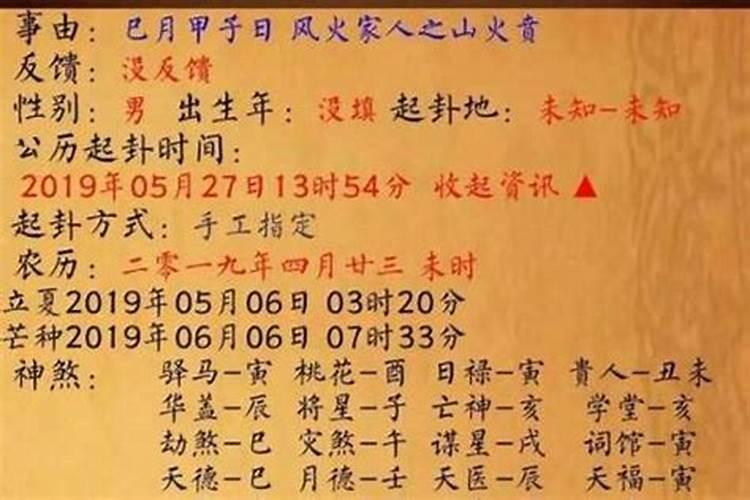 事由：巳月甲子日 风火家人之山火贲
反馈：没反馈
性别：男 出生年：没填 起卦地：未知-未知
公历起卦时间：
2019年05月27日13时54分 收起资讯 ▲
起卦方式：手工指定
农历：二零一九年四月廿三 未时
立夏2019年05月06日 03时20分
芒种2019年06月06日 07时33分
神煞：驿马-寅 桃花-酉 日禄-寅 贵人-丑未
华盖-辰 将星-子 亡神-亥 学堂-亥
劫煞-巳 灾煞-午 谋星-戌 词馆-寅
天德-巳 月德-壬 天医-辰 天福-寅